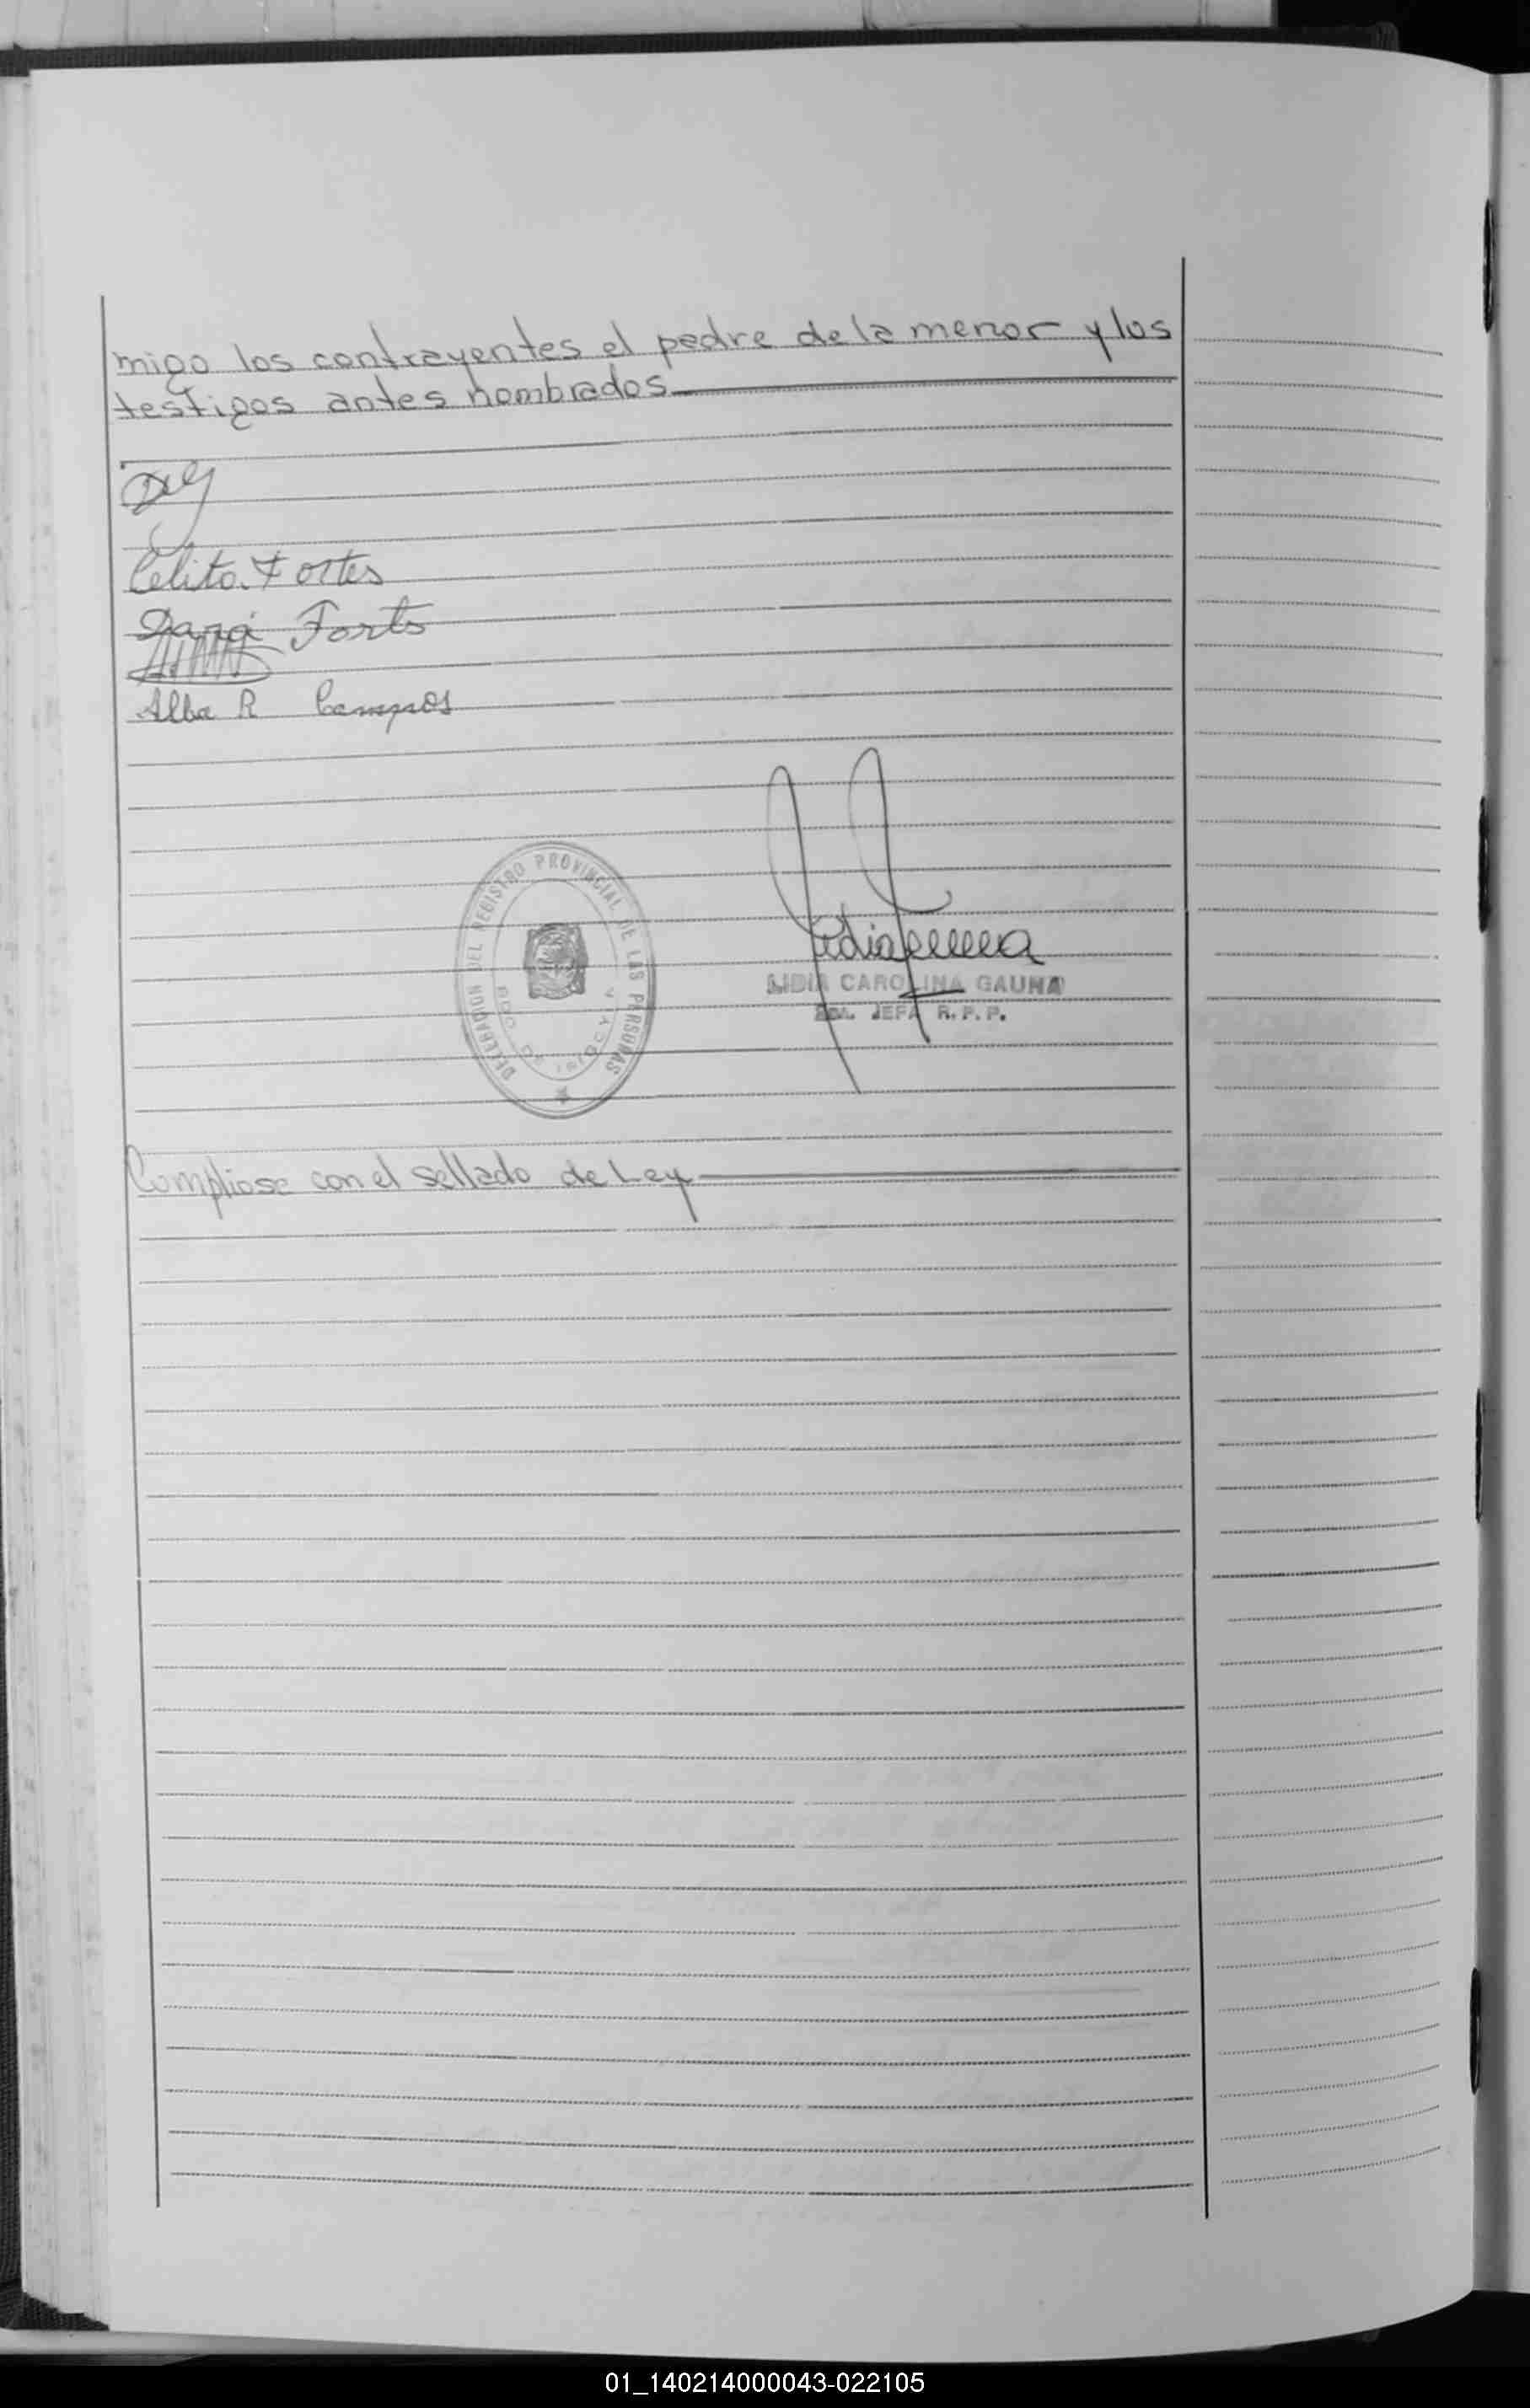 migo los contrayentes el padre de la menor y los
testigos antes nombrados
Celito Fortes
Fortes
Alba R Campos
DELEGACION DEL REGISTRO PROVINCIAL DE LAS PERSONAS
LIDIA CAROLINA GAUNA
JEFA R.P.P.
Cumpliose con el sellado de Ley
01_140214000043-022105